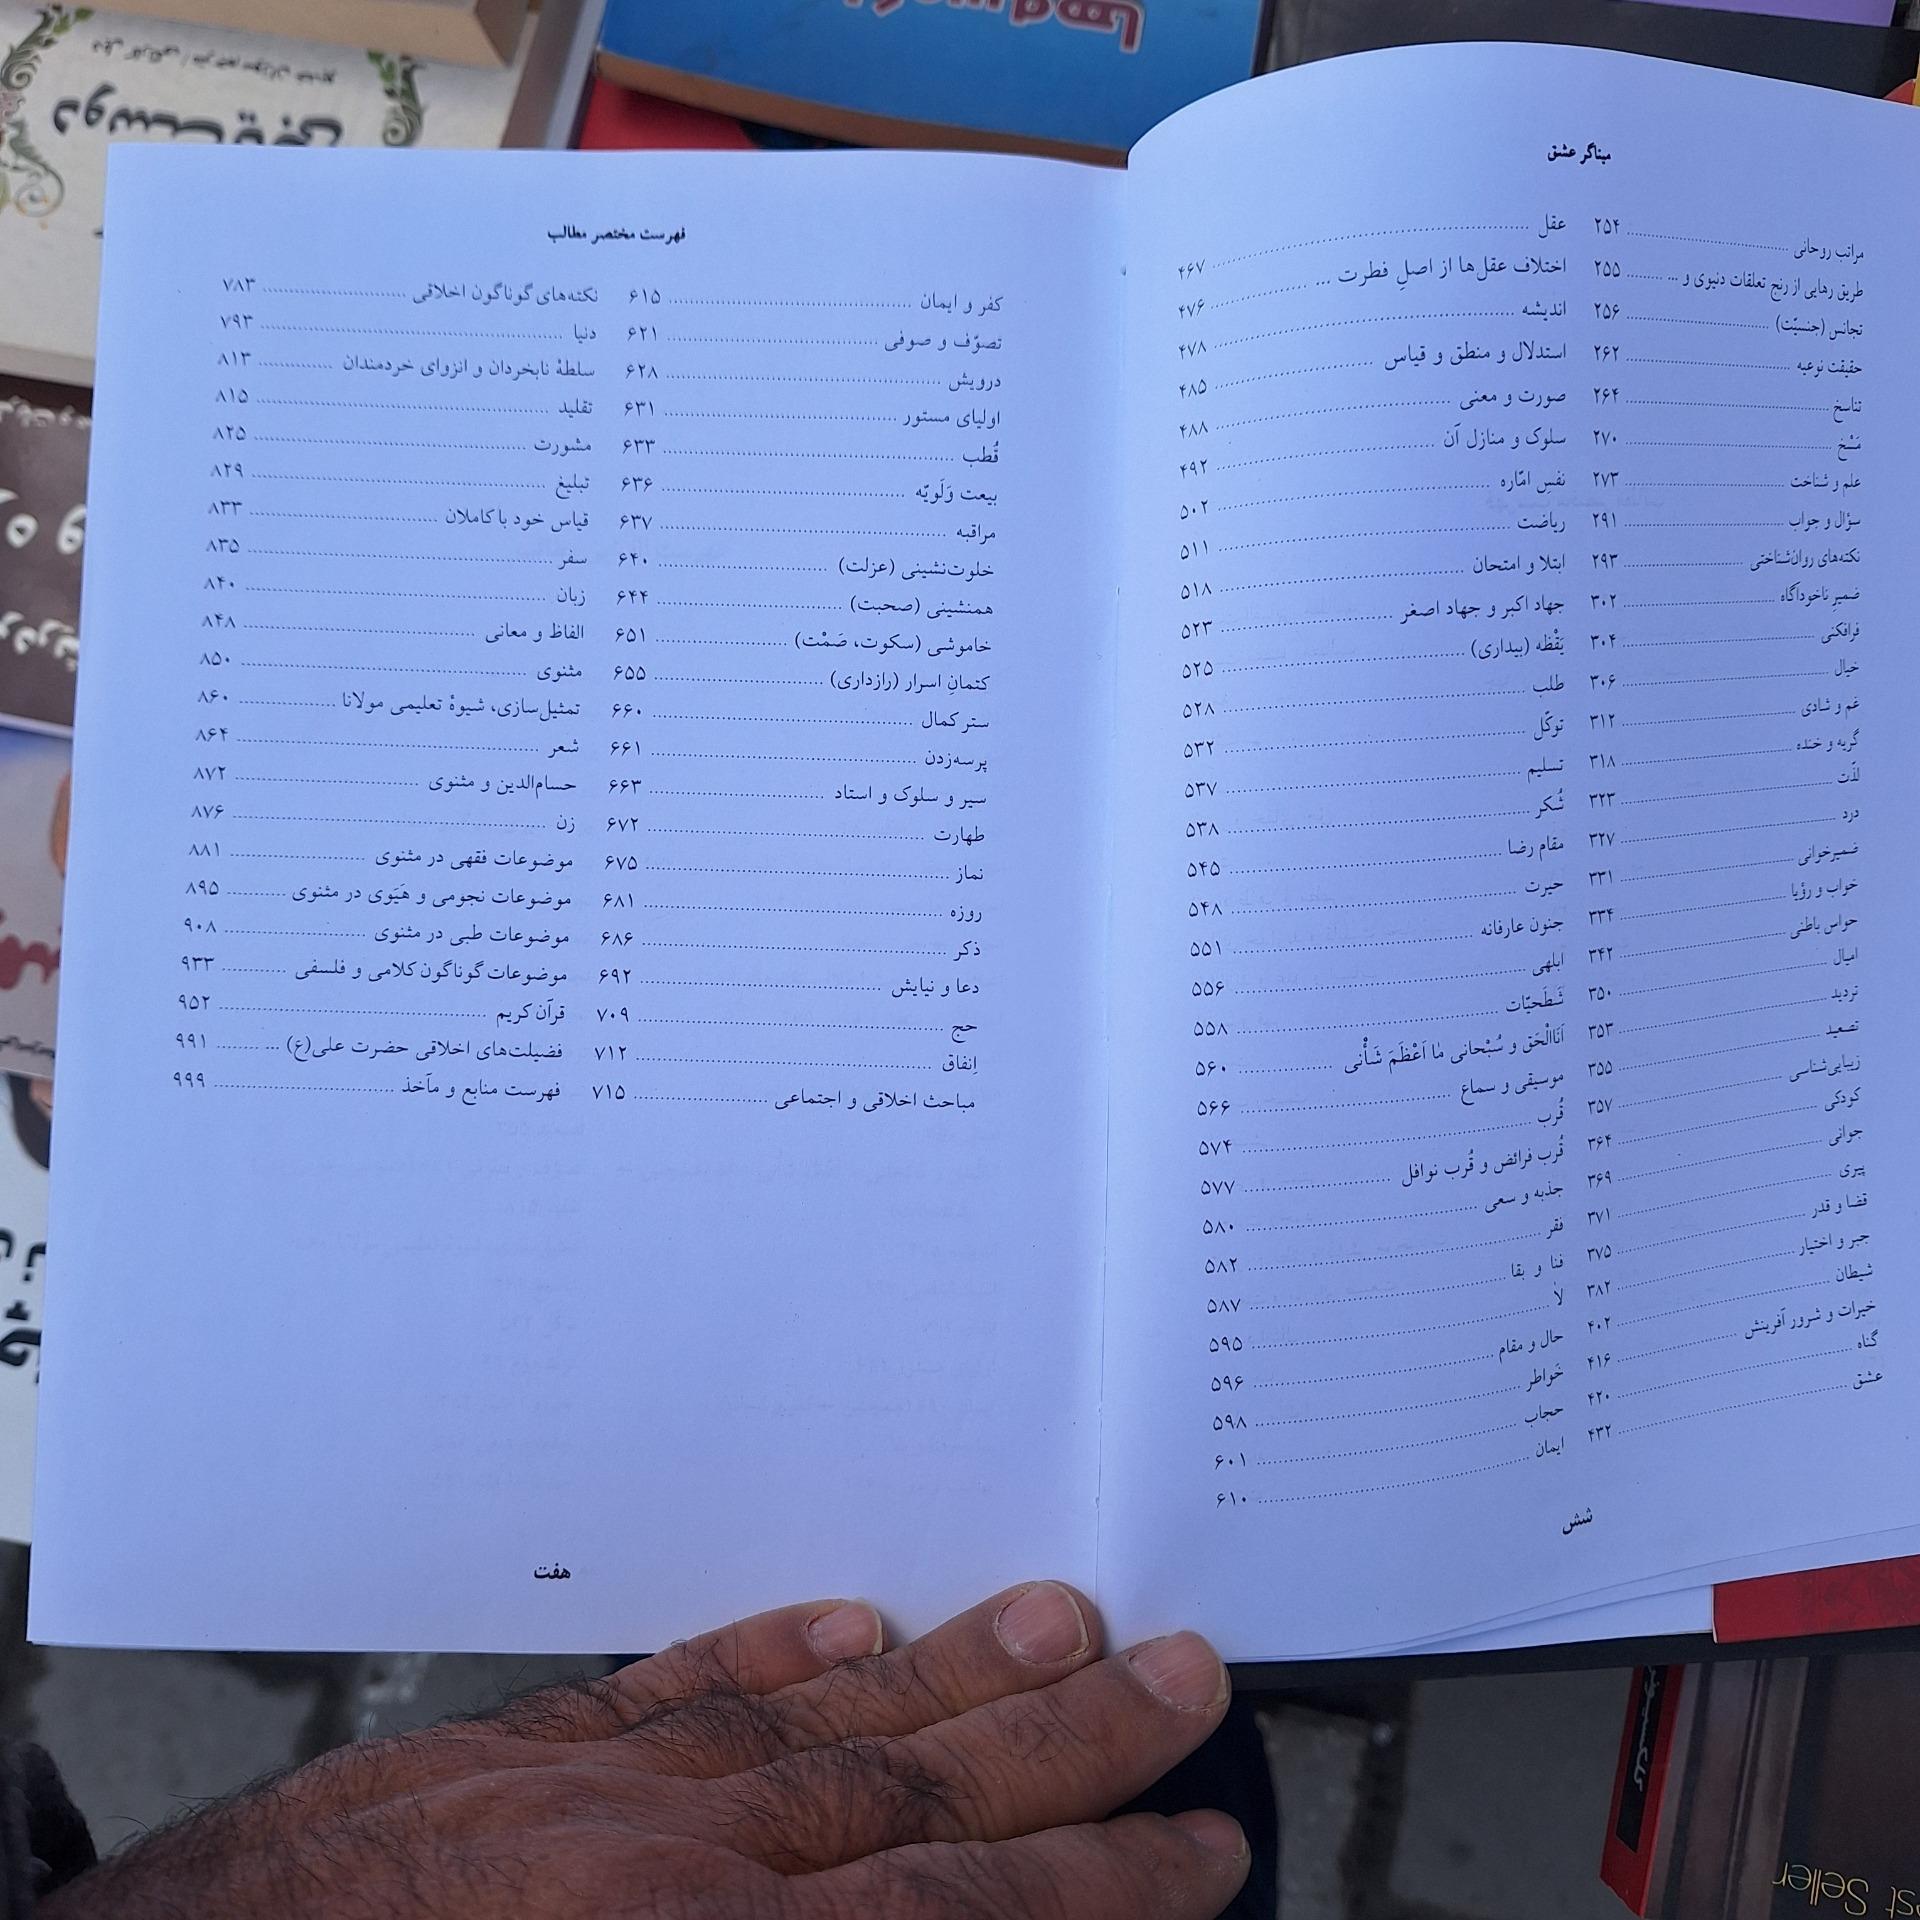 میناگر عشق
مراتب روحانی ۲۵۴
طریق رهایی از رنج تعلقات دنیوی و ... ۲۵۵
تجانس (جنسیّت) ۲۵۶
حقیقت نوعیه ۲۶۲
تناسخ ۲۶۴
مَسْخ ۲۷۰
علم و شناخت ۲۷۳
سؤال و جواب ۲۹۱
نکته‌های روان‌شناختی ۲۹۳
ضمیر ناخودآگاه ۳۰۲
فرافکنی ۳۰۴
خیال ۳۰۶
غم و شادی ۳۱۲
گریه و خنده ۳۱۸
لذّت ۳۲۳
درد ۳۲۷
ضمیرخوانی ۳۳۱
خواب و رؤیا ۳۳۴
حواس باطنی ۳۴۲
امیال ۳۵۰
تردید ۳۵۳
تصعید ۳۵۵
زیبایی‌شناسی ۳۵۷
کودکی ۳۶۴
جوانی ۳۶۹
پیری ۳۷۱
قضا و قدر ۳۷۵
جبر و اختیار ۳۸۲
شیطان ۴۰۲
خیرات و شرور آفرینش ۴۱۶
گناه ۴۲۰
عشق ۴۳۲
عقل ۴۶۷
اختلاف عقل‌ها از اصلِ فطرت ... ۴۷۶
اندیشه ۴۷۸
استدلال و منطق و قیاس ۴۸۵
صورت و معنی ۴۸۸
سلوک و منازل آن ۴۹۲
نفسِ امّاره ۵۰۲
ریاضت ۵۱۱
ابتلا و امتحان ۵۱۸
جهاد اکبر و جهاد اصغر ۵۲۳
یَقْظه (بیداری) ۵۲۵
طلب ۵۲۸
توکّل ۵۳۲
تسلیم ۵۳۷
شُکر ۵۳۸
مقام رضا ۵۴۵
حیرت ۵۴۸
جنون عارفانه ۵۵۱
ابلهی ۵۵۶
شَطَحیّات ۵۵۸
اَنَاالْحَق و سُبْحانی مٰا اَعْظَمَ شَأْنی ۵۶۰
موسیقی و سماع ۵۶۶
قُرب ۵۷۴
قُرب فرائض و قُرب نوافل ۵۷۷
جذبه و سعی ۵۸۰
فقر ۵۸۲
فنا و بقا ۵۸۷
لا ۵۹۵
حال و مقام ۵۹۶
خَواطر ۵۹۸
حجاب ۶۰۱
ایمان ۶۱۰
شش
فهرست مختصر مطالب
کفر و ایمان ۶۱۵
تصوّف و صوفی ۶۲۱
درویش ۶۲۸
اولیای مستور ۶۳۱
قُطب ۶۳۳
بیعت وَلَویّه ۶۳۶
مراقبه ۶۳۷
خلوت‌نشینی (عزلت) ۶۴۰
همنشینی (صحبت) ۶۴۴
خاموشی (سکوت، صَمْت) ۶۵۱
کتمانِ اسرار (رازداری) ۶۵۵
ستر کمال ۶۶۰
پرسه‌زدن ۶۶۱
سیر و سلوک و استاد ۶۶۳
طهارت ۶۷۲
نماز ۶۷۵
روزه ۶۸۱
ذکر ۶۸۶
دعا و نیایش ۶۹۲
حج ۷۰۹
اِنفاق ۷۱۲
مباحث اخلاقی و اجتماعی ۷۱۵
نکته‌های گوناگون اخلاقی ۷۸۳
دنیا ۷۹۳
سلطهٔ نابخردان و انزوای خردمندان ۸۱۳
تقلید ۸۱۵
مشورت ۸۲۵
تبلیغ ۸۲۹
قیاس خود با کاملان ۸۳۳
سفر ۸۳۵
زبان ۸۴۰
الفاظ و معانی ۸۴۸
مثنوی ۸۵۰
تمثیل‌سازی، شیوهٔ تعلیمی مولانا ۸۶۰
شعر ۸۶۴
حسام‌الدین و مثنوی ۸۷۲
زن ۸۷۶
موضوعات فقهی در مثنوی ۸۸۱
موضوعات نجومی و هَیَوی در مثنوی ۸۹۵
موضوعات طبی در مثنوی ۹۰۸
موضوعات گوناگون کلامی و فلسفی ۹۳۳
قرآن کریم ۹۵۲
فضیلت‌های اخلاقی حضرت علی(ع) ... ۹۹۱
فهرست منابع و مآخذ ۹۹۹
هفت
st Seller